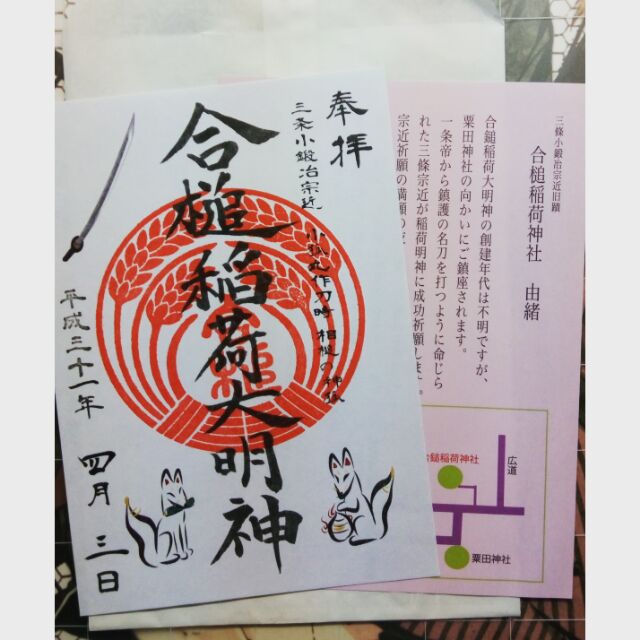 奉拝
三条小鍛冶宗近
小狐丸作刀時 相槌の神狐
合槌稲荷大明神
平成三十一年 四月 三日
三條小鍛冶宗近旧蹟
合槌稲荷神社 由緒
合鎚稲荷大明神の創建年代は不明ですが、
粟田神社の向かいにご鎮座されます。
一条帝から鎮護の名刀を打つように命じら
れた三條宗近が稲荷明神に成功祈願しま
宗近祈願の満願の
合鎚稲荷神社
広道
粟田神社